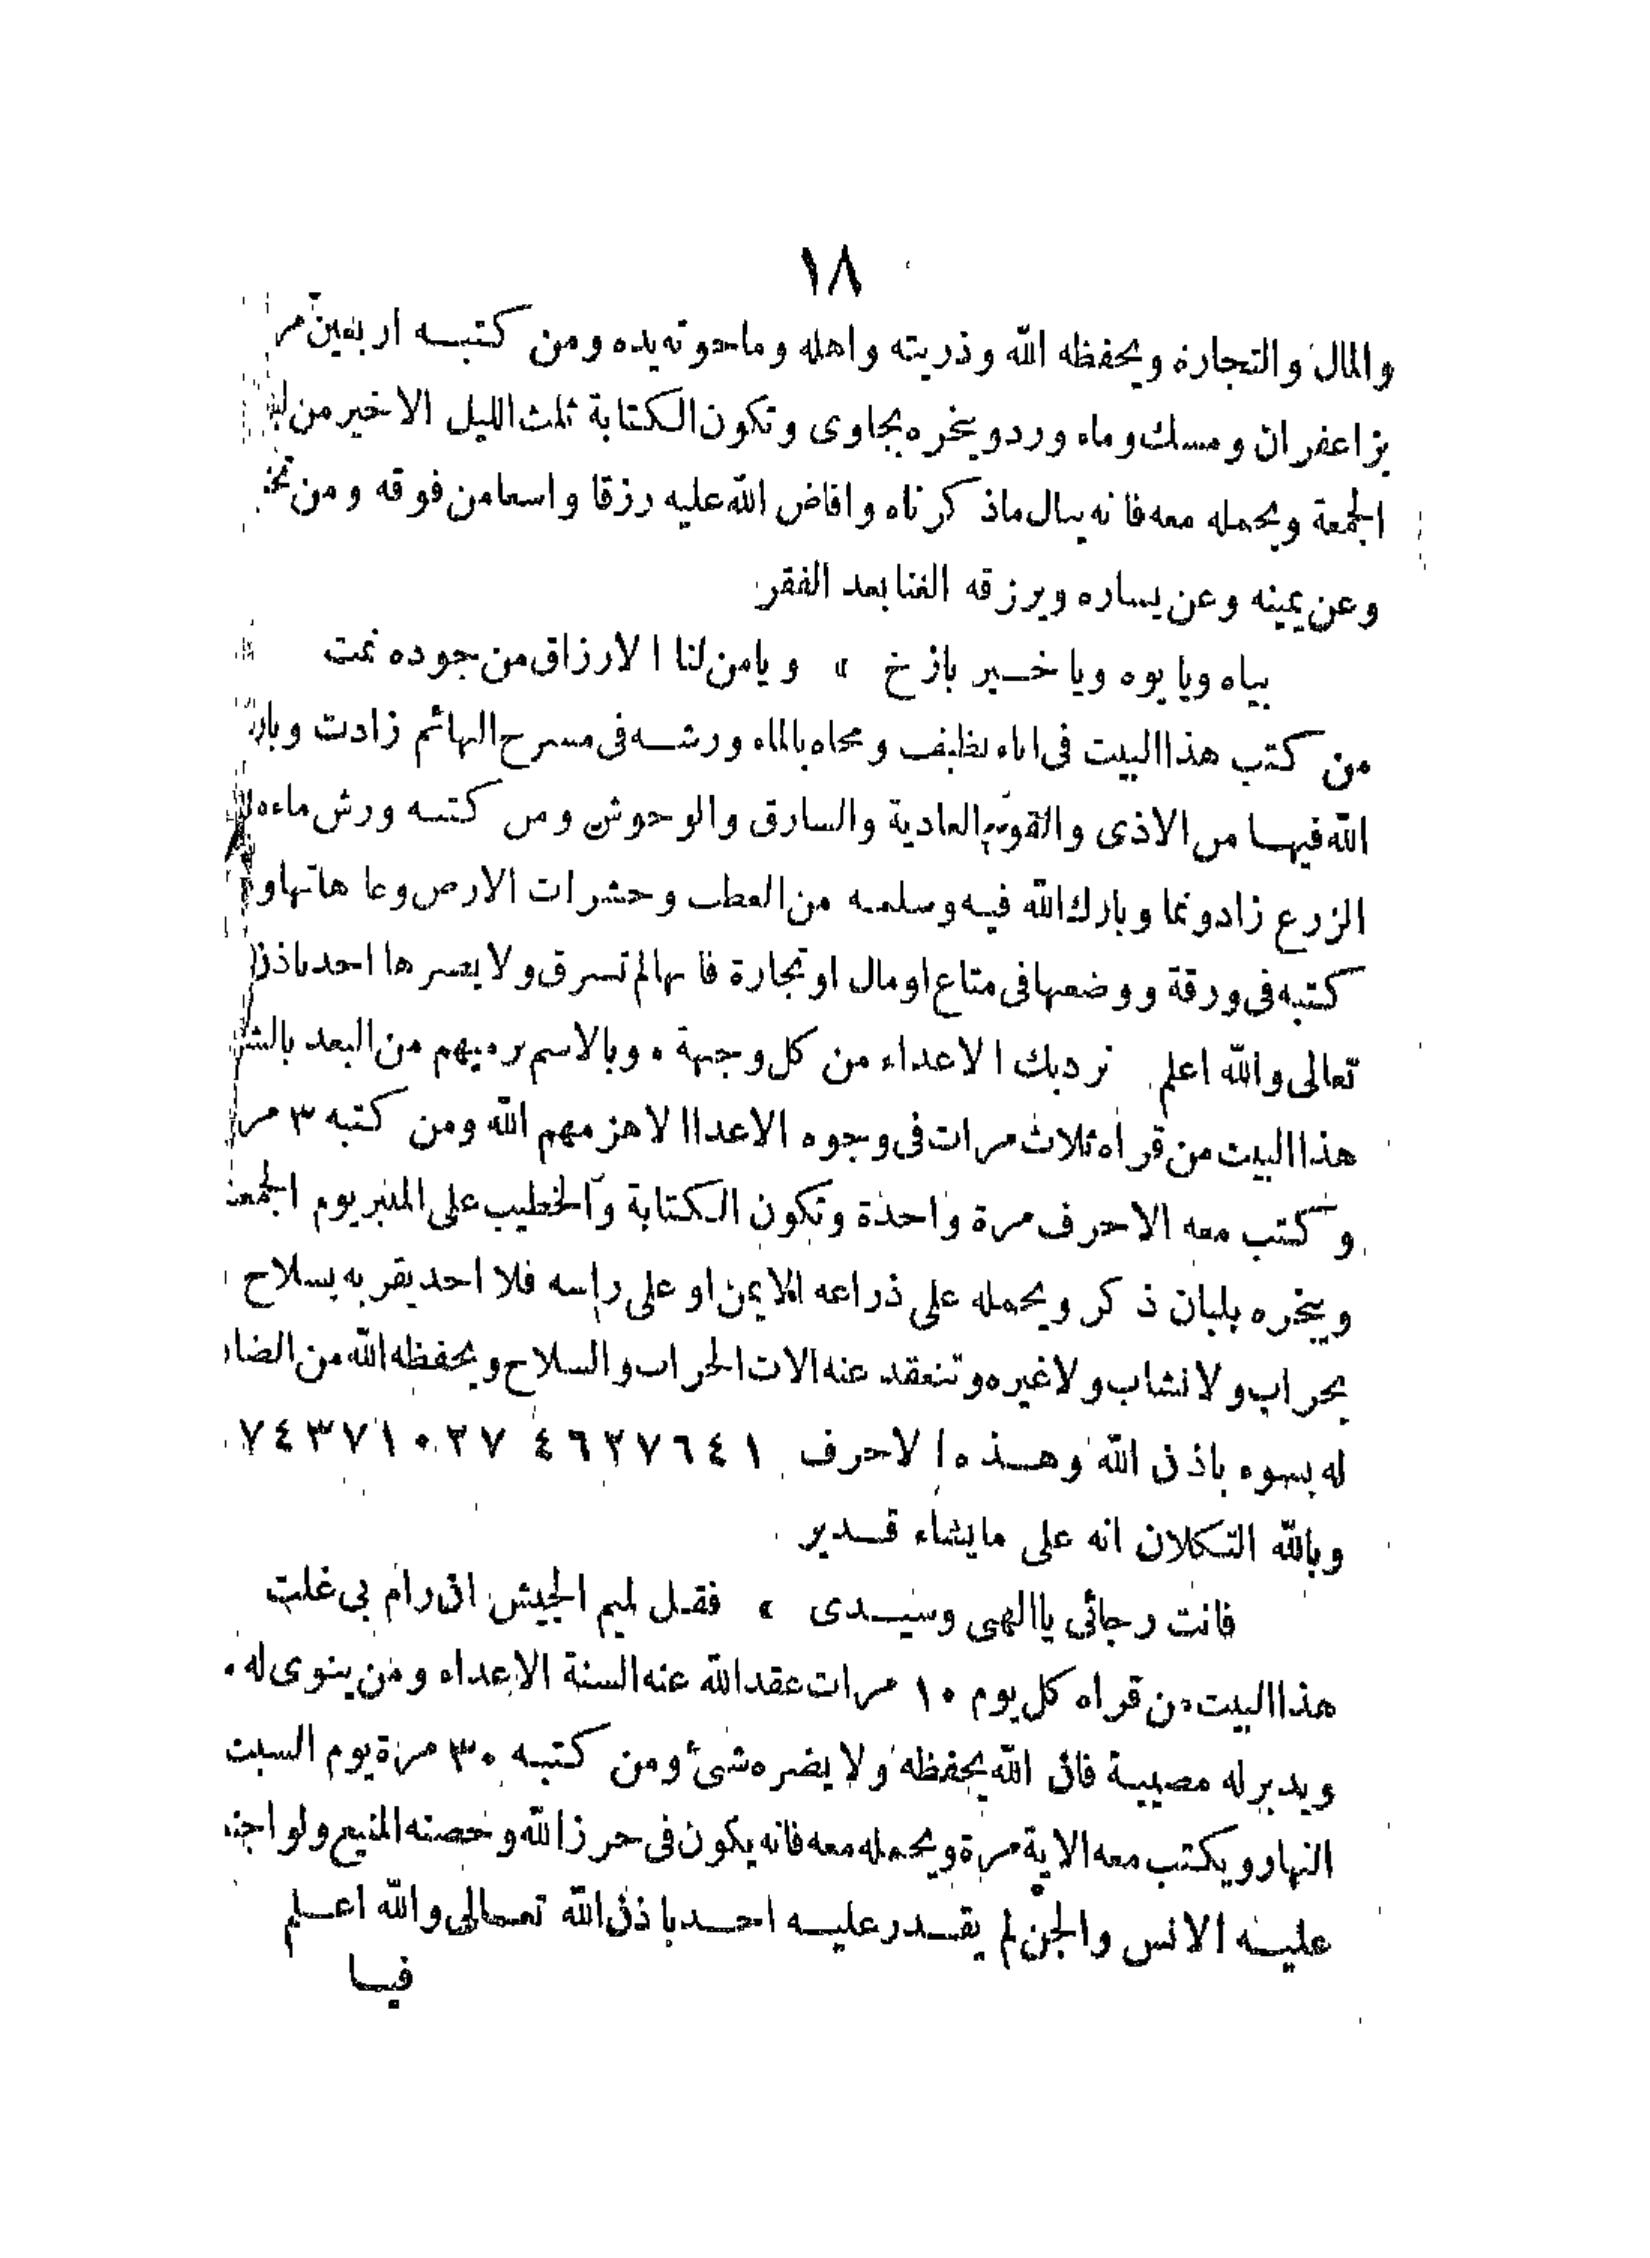 ١٨
والمال والتجارة ويحفظه الله وذريته واهله وماحوته يده ومن كتبه اربعين مر
بزاعفران ومسك وماء ورد ويبخره بجاوى وتكون الكتابة ثلث الليل الاخير من
الجمعة ويحمله معه فانه ينال ماذكرناه وافاض الله عليه رزقا واسعا من فوقه ومن
وعن يمينه وعن يساره ويرزقه الغنا بعد الفقر
بياه ويا يوه ويا خير بازخ » ويا من لنا الارزاق من جوده نمت
من كتب هذا البيت فى اناء نظيف ومحاه بالماء ورشه فى مسرح البهائم زادت
الله فيها من الاذى والقوس العادية والسارق والوحوش ومن كتبه ورش ماءه
الزرع زاد ونما وبارك الله فيه وسلمه من العطب وحشرات الارض وعاهاتها
كتبه فى ورقة ووضعها فى متاع او مال او تجارة فانها لم تسرق ولا يضرها احد باذن
تعالى والله اعلم نرد بك الاعداء من كل وجهة ه وبالاسم نرميهم من البعد
هذا البيت من قرأه ثلاث مرات فى وجوه الاعدا الا هزمهم الله ومن كتبه ٣ مر
وكتب معه الاحرف مرة واحدة وتكون الكتابة والخطيب على المنبر يوم الجمعة
ويبخره بلبان ذكر ويحمله على ذراعه الايمن او على راسه فلا احد يقربه بسلاح
بحراب ولا نشاب ولا غيره وتنعقد عنه الات الحراب والسلاح ويحفظه الله من
له بسوء باذن الله وهذه الاحرف ٤٦٢٧٦٤١ ٧٤٣٧١٠٢٧
وبالله التكلان انه على ما يشاء قدير
فانت رجائى يا الهى وسيدى » فقل لميم الجيش ان رام بى غلت
هذا البيت من قراه كل يوم ١٠ مرات عقد الله عنه السنة الاعداء ومن ينوى له
ويدبر له مصيبة فان الله يحفظه ولا يضره شئ ومن كتبه ٣٠ مرة يوم السبت
النهار ويكتب معه الاية مرة ويحمله معه فانه يكون فى حرز الله وحصنه المنيع ولو
عليه الانس والجن لم يقدر عليه احد باذن الله تعالى والله اعلم
فيا